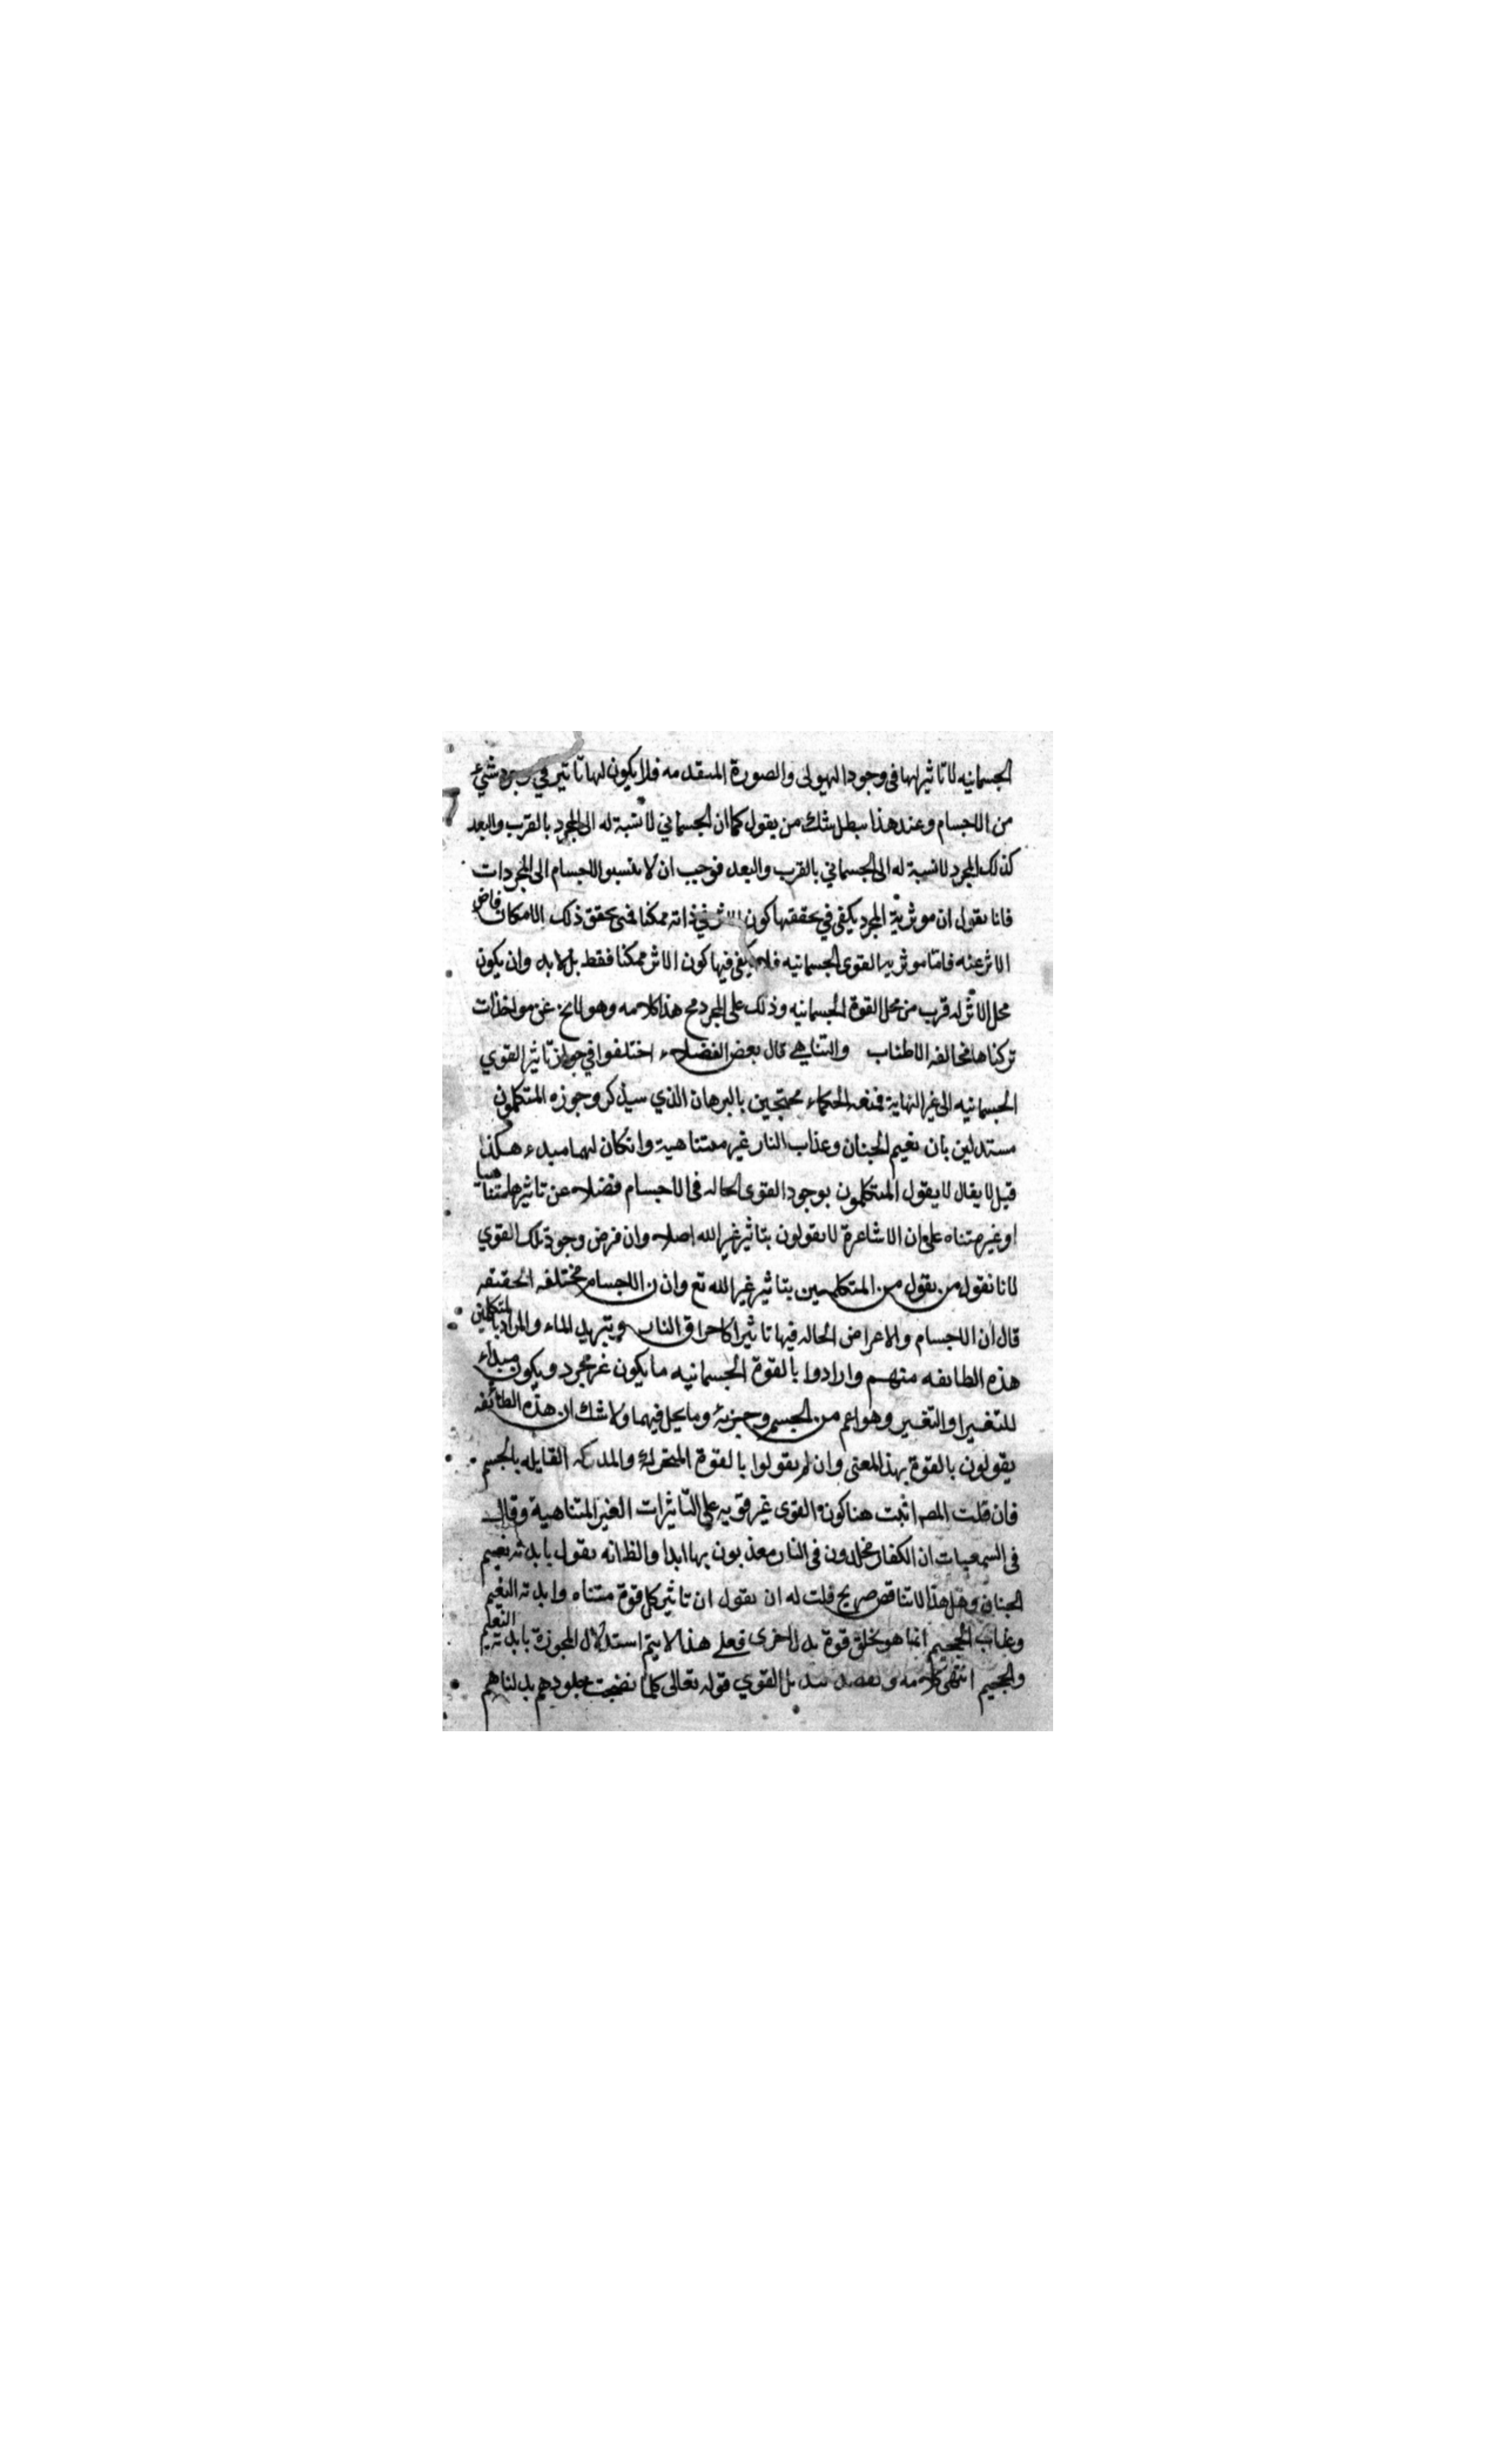 الجسمانيه لا تاثير لها فى وجود الهيولى والصورة المتقدمه فلا يكون لها تاثير في وجود شيء
من الاجسام وعند هذا يبطل شك من يقول كما ان الجسماني لا نسبة له الى المجرد بالقرب والبعد
كذلك المجرد لا نسبة له الى الجسماني بالقرب والبعد فوجب ان لا ينسبوا الاجسام الى المجردات
فانا نقول ان موثرية المجرد يكفى في تحققها كون الاثر في ذاته ممكنا فمتى تحقق ذلك الامكان فاض
الاثر عنه فامّا موثريه القوى الجسمانيه فلا يكفى فيها كون الاثر ممكنا فقط بل لابد وان يكون
محل الاثر له قرب من محل القوة الجسمانيه وذلك على المجرد مح هذا كلامه وهو لا يخ عن مواخذات
تركناها مخالفه الاطناب والتناهي قال بعض الفضلاء اختلفوا في جواز تاثير القوي
الجسمانيه الى غير النهاية فمنعه الحكماء محتجين بالبرهان الذي سيذكر وجوزه المتكلمون
مستدلين بان نعيم الجنان وعذاب النار غير متناهية وان كان لهما مبدء هكذا
قيل لا يقال لا يقول المتكلمون بوجود القوى الحاله فى الاجسام فضلا عن تاثيرها متناهيا
او غير متناه على ان الاشاعرة لا يقولون بتاثير غير الله اصلا وان فرض وجود تلك القوي
لانا نقول من يقول من المتكلمين بتاثير غير الله تع وان الاجسام مختلفه الحقيقه
قال ان الاجسام والاعراض الحاله فيها تاثيرا كاحراق النار وتبريد الماء والمراد بالمتكلمين
هذه الطائفه منهم وارادوا بالقوة الجسمانيه ما يكون غير مجرد ويكون مبداء
للتغير او التغيير وهو اعم من الجسم وجزئه وما يحل فيهما ولا شك ان هذه الطائفه
يقولون بالقوة بهذا المعنى وان لم يقولوا بالقوة المحركه والمدركه القايله بالجسم
فان قلت المص اثبت هنا كون القوى غير قويه على التاثيرات الغير المتناهية وقال
فى السمعيات ان الكفار مخلدون فى النار معذبون بها ابدا والظ انه يقول بابدية نعيم
الجنان وهل هذا الا تناقض صريح قلت له ان يقول ان تاثير كل قوة متناه وابدية النعيم
وعذاب الجحيم انما هو بخلق قوة بدل اخرى فعلى هذا لا يتم استدلال المجوزة بابدية النعيم
والجحيم انتهى كلامه و تبدل القوي قوله تعالى كلما نضجت جلودهم بدلناهم